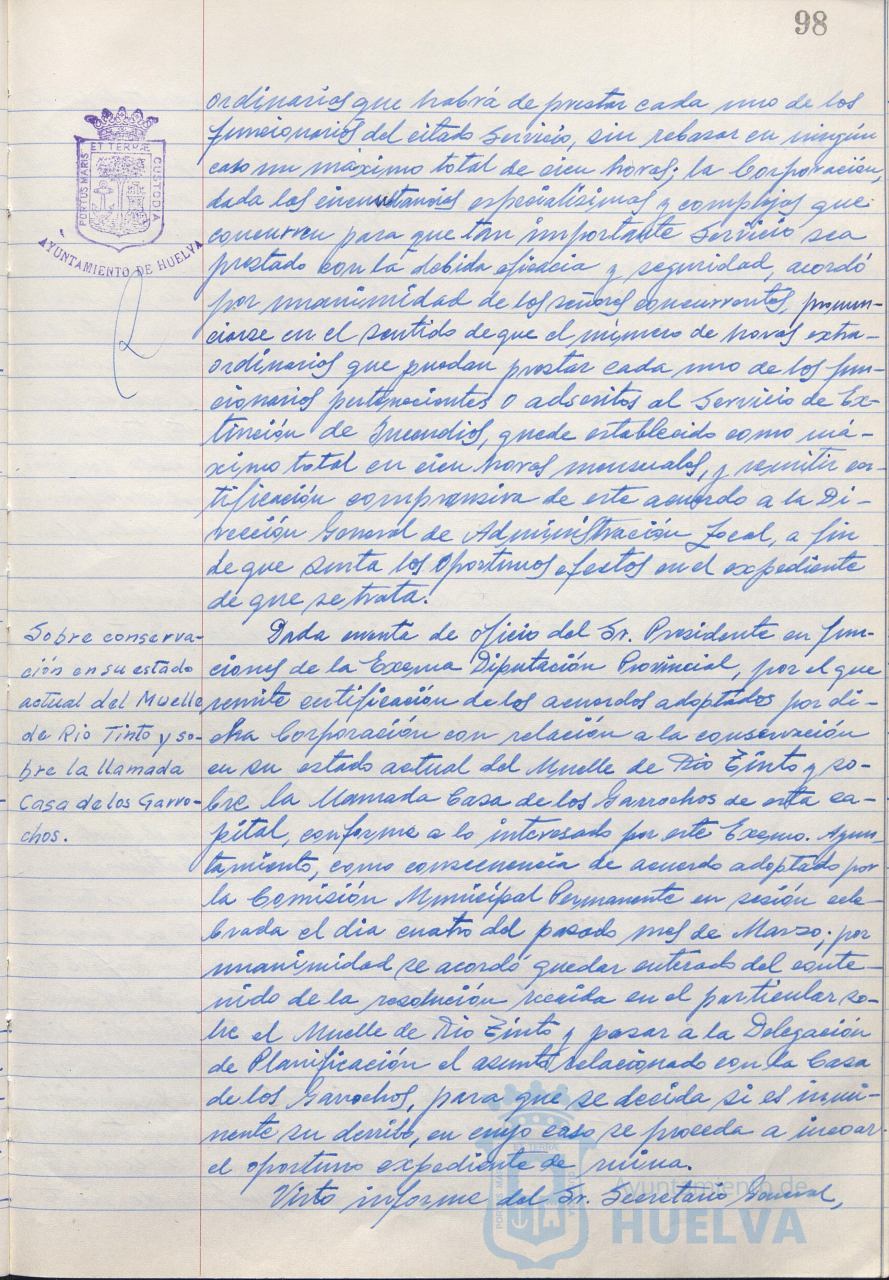 98
ET TERRÆ
PORTUS MARIS
CUSTODIA
AYUNTAMIENTO DE HUELVA
ordinarias que habrá de prestar cada uno de los
funcionarios del citado Servicio, sin rebasar en ningún
caso un máximo total de cien horas; la Corporación,
dada las circunstancias especialísimas y complejas que
concurren para que tan importante Servicio sea
prestado con la debida eficacia y seguridad, acordó
por unanimidad de los señores concurrentes, pronun-
ciarse en el sentido de que el número de horas extra-
ordinarias que puedan prestar cada uno de los fun-
cionarios pertenecientes o adscritos al Servicio de Ex-
tinción de Incendios, quede establecido como má-
ximo total en cien horas mensuales, y remitir cer-
tificación comprensiva de este acuerdo a la Di-
rección General de Administración Local, a fin
de que surta los oportunos efectos en el expediente
de que se trata.
Sobre conserva-
ción en su estado
actual del Muelle
de Rio Tinto y so-
bre la llamada
Casa de los Garro-
chos.
Dada cuenta de oficio del Sr. Presidente en fun-
ciones de la Excma Diputación Provincial, por el que
remite certificación de los acuerdos adoptados por di-
cha Corporación con relación a la conservación
en su estado actual del Muelle de Rio Tinto y so-
bre la llamada Casa de los Garrochos de esta ca-
pital, conforme a lo interesado por este Excmo. Ayun-
tamiento, como consecuencia de acuerdo adoptado por
la Comisión Municipal Permanente en sesión cele-
brada el dia cuatro del pasado mes de Marzo; por
unanimidad se acordó quedar enterado del conte-
nido de la resolución recaida en el particular so-
bre el Muelle de Rio Tinto y pasar a la Delegación
de Planificación el asunto relacionado con la Casa
de los Garrochos, para que se decida si es inmi-
nente su derribo, en cuyo caso se proceda a incoar
el oportuno expediente de ruina.
Visto informe del Sr. Secretario General,
Ayuntamiento de
HUELVA